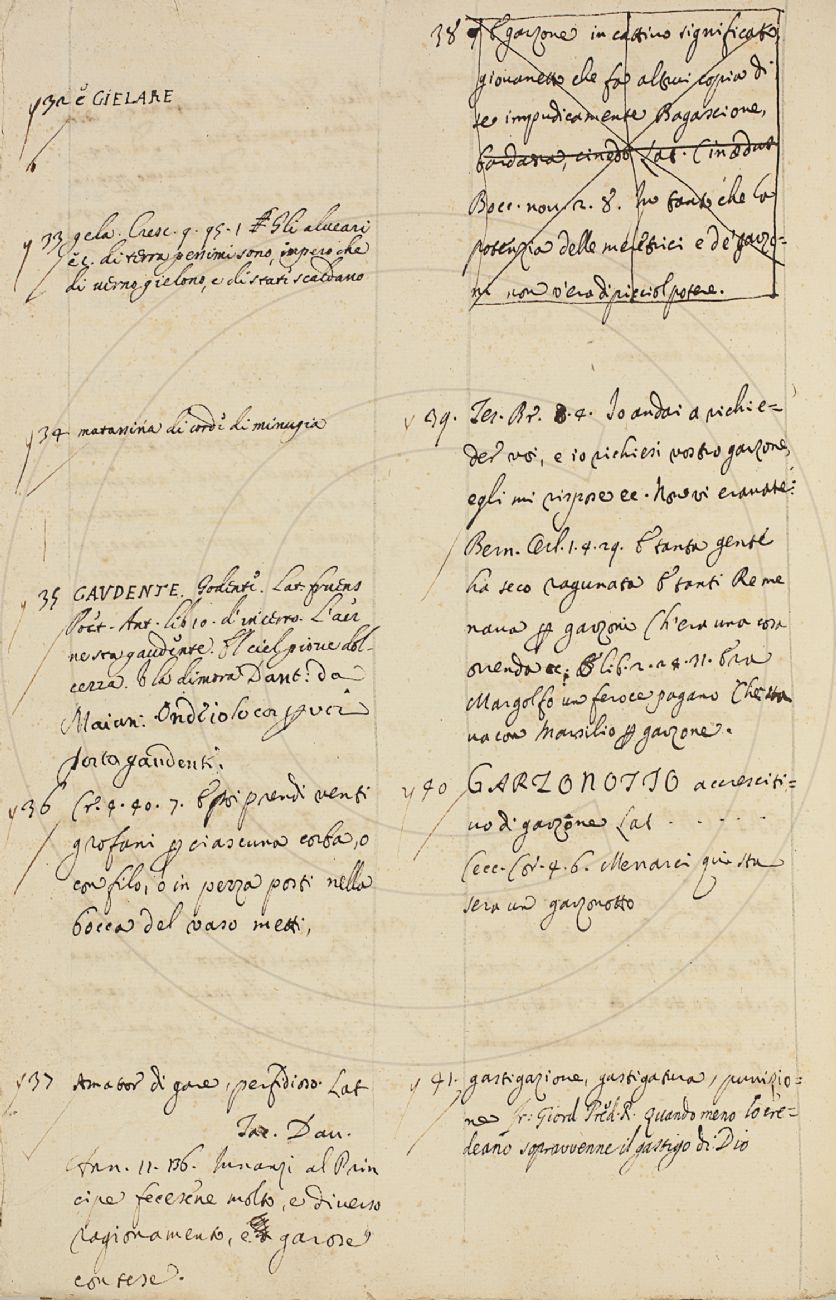 32 e GIELARE
33 gela. Cresc. 9. 95. 1 Gli alveari
ec. di terra pessimi sono, impero che
di verno gielono, e di stati scaldano
34 matassina di corde di minugia
35 GAVDENTE, Godente. Lat. fruens
Poet. Ant. lib 10. d'incerto. L'aer
ne sta gaudente. E'l ciel piove dol-
cezza. E la dimora Dant: da
Maian: Ond'eo lo cor
porta gaudente.
36 Cr. 4. 40. 7. E poi prendi venti
grofani p ciascuna corba, o
con filo, o in pezza posti nella
bocca del vaso metti,
37 Amator di gare, perfidioso. Lat
Tac. Dav.
Ann. 11. 136. Innanzi al Prin
cipe fecesene molto, e diverso
ragionamento, e garose
contese.
38 E garzone in cattivo significato,
giovanetto che fa altrui copia di
se impudicamente Bagascione,
bardassa, cinedo Lat. Cinædus
Bocc. nov. 2. 8. In tanto che la
potenzia delle meretrici e de' garzo=
ni non v'era di picciol potere.
39. Tes. Br. 8. 4. Io andai a richie=
der voi, e io richiesi vostro garzone,
egli mi rispose ec. Non vi eravate:
Bern. Orl. 1. 4. 29. E tanta gente
ha seco ragunata E tanti Re me
nava p garzoni Ch'era una cosa
orrenda ec; E lib. 2. 28. 11. Era
Margolfo un feroce pagano Che sta
va con Marsilio p garzone.
40 GARZONOTTO accresciti=
vo di garzone Lat . . . . .
Cecc. Cor. 4. 6. Menarci qui sta
sera un garzonotto
41. gastigazione, gastigatura, punizio=
ne Fr: Giord Pred. R. quando meno lo cre=
deano sopravvenne il gastigo di Dio